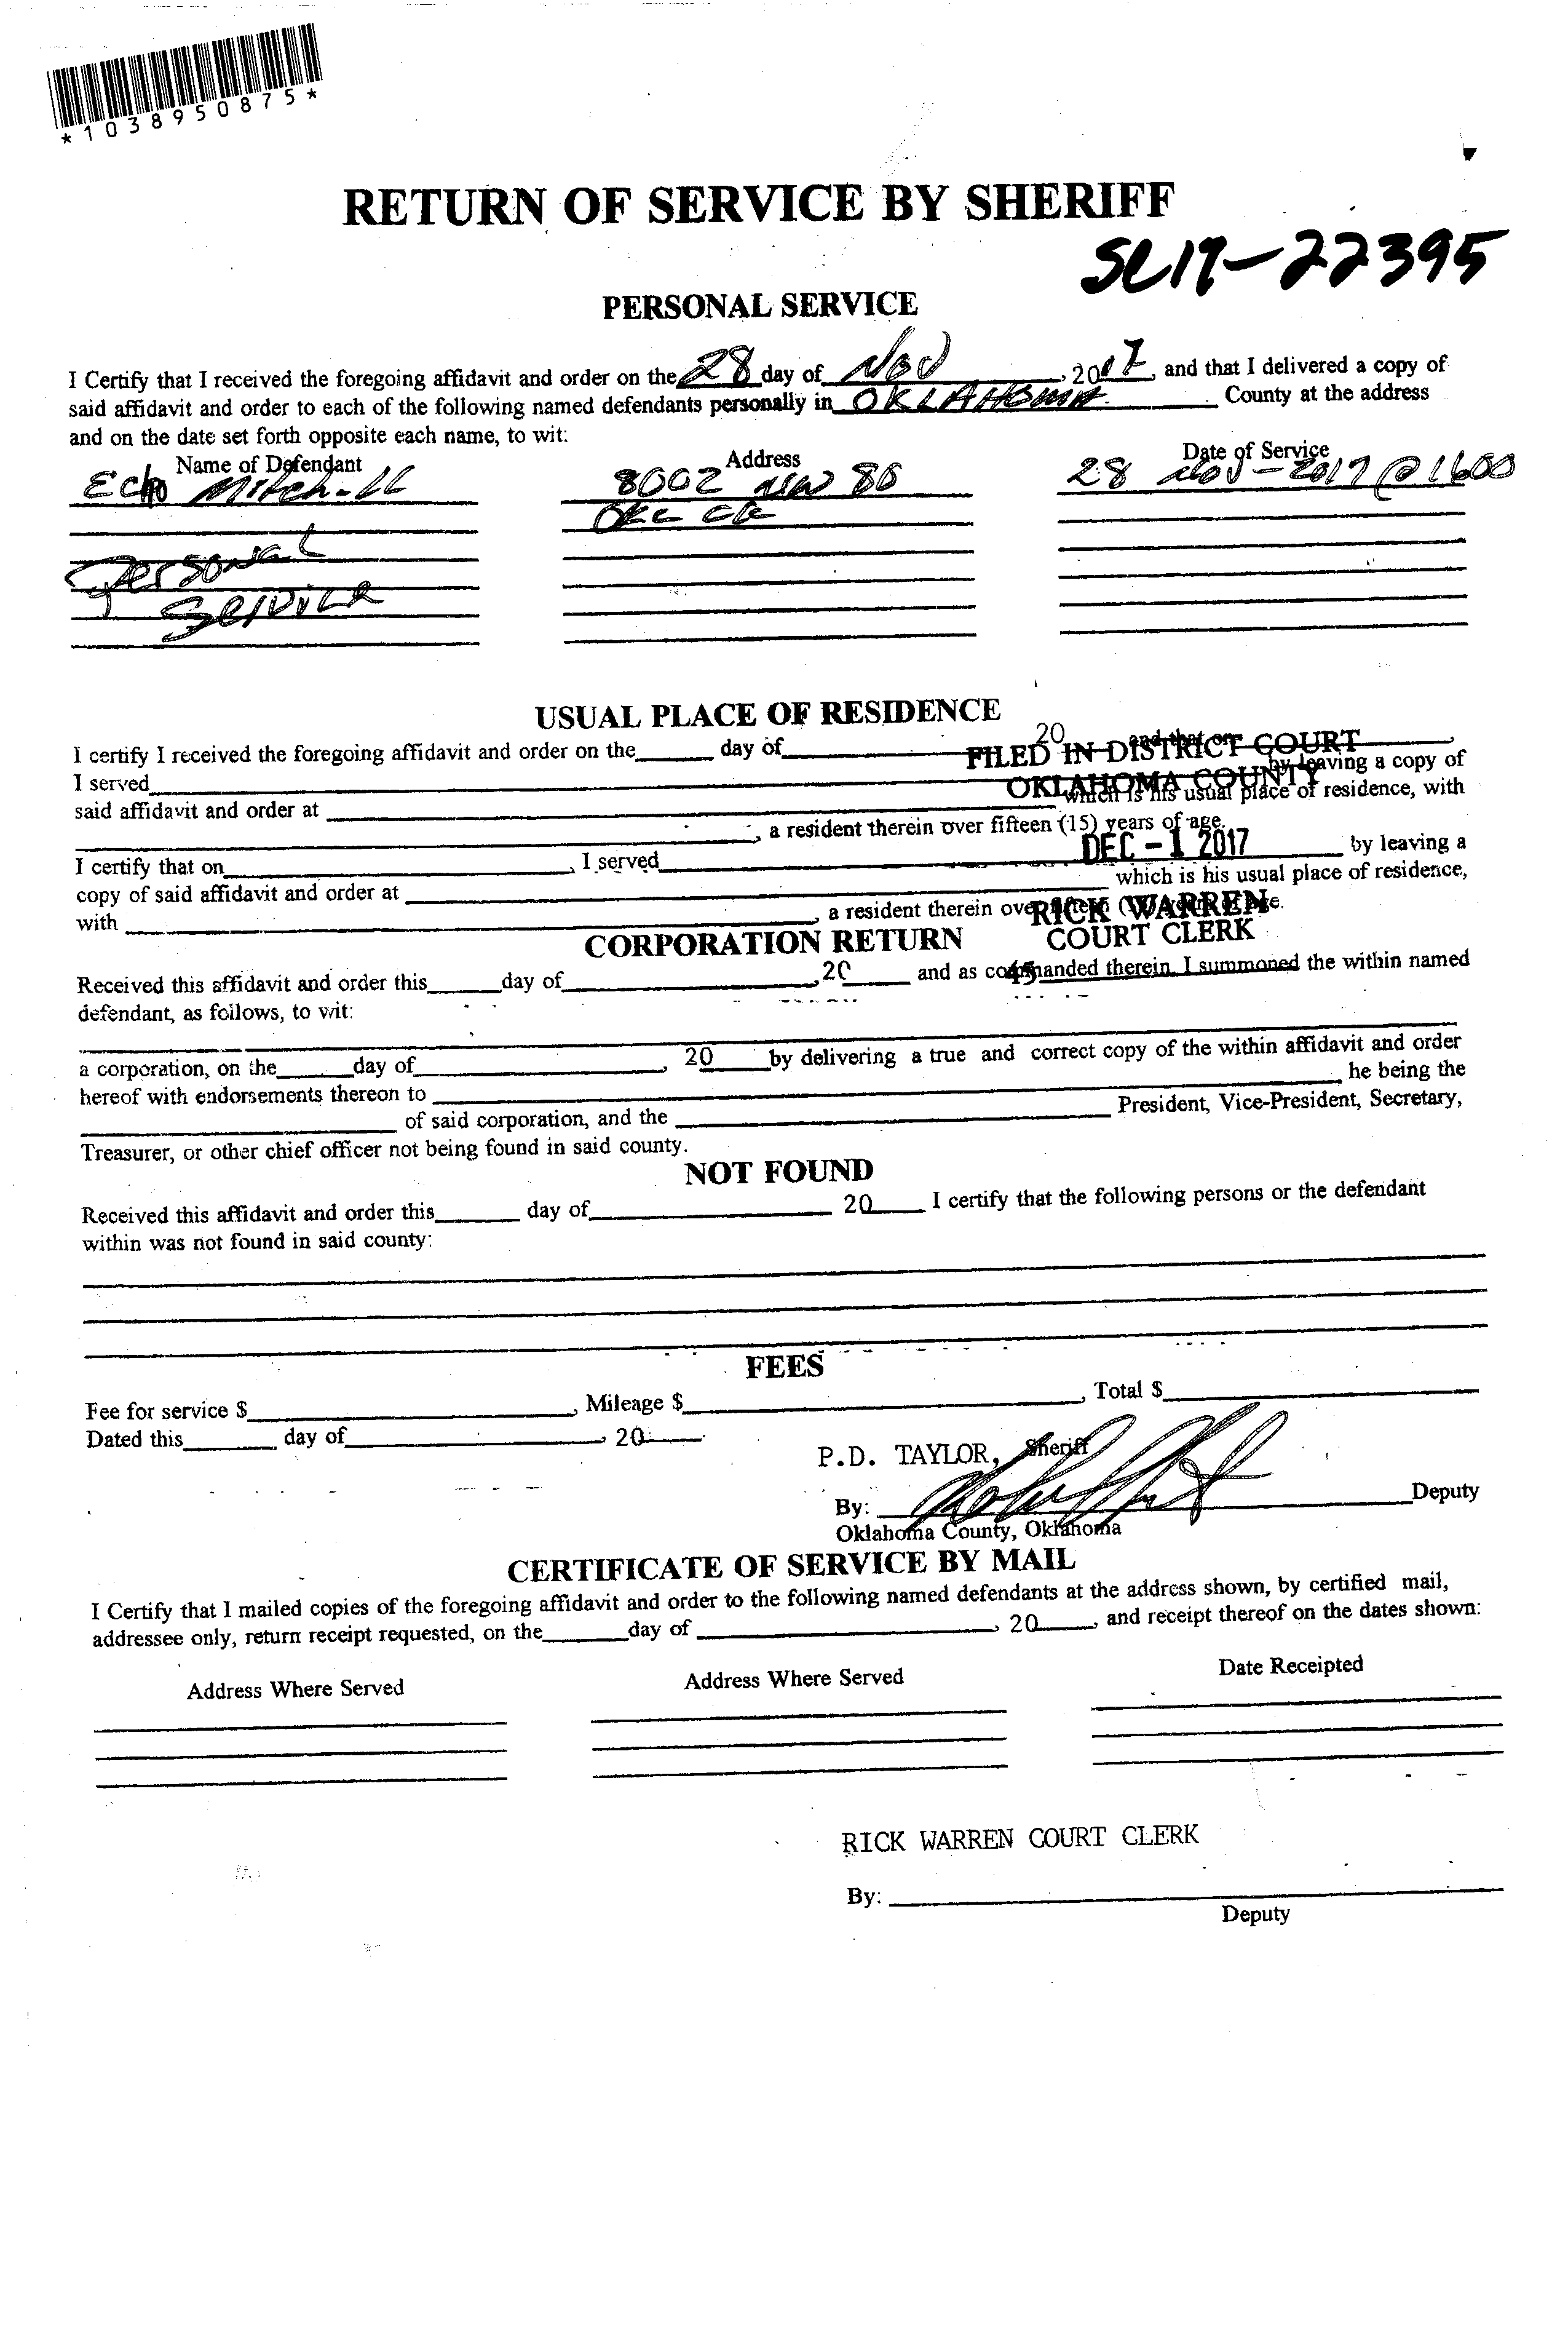 *1038950875*
RETURN OF SERVICE BY SHERIFF
SC17-22395
PERSONAL SERVICE
I Certify that I received the foregoing affidavit and order on the 28 day of Nov, 2017, and that I delivered a copy of
said affidavit and order to each of the following named defendants personally in OKLAHOMA County at the address
and on the date set forth opposite each name, to wit:
Name of Defendant Address Date of Service
Echo Mitchell 8002 NW 80 28 Nov-2017 @ 1600
OKC
Personal
Service
USUAL PLACE OF RESIDENCE
I certify I received the foregoing affidavit and order on the ______ day of ______ 20 and that on
FILED IN DISTRICT COURT
I served ______ by leaving a copy of
OKLAHOMA COUNTY
said affidavit and order at ______ which is his usual place of residence, with
______, a resident therein over fifteen (15) years of age.
DEC -1 2017
I certify that on ______, I served ______ by leaving a
copy of said affidavit and order at ______ which is his usual place of residence,
with ______, a resident therein over fifteen (15) years of age.
RICK WARREN
COURT CLERK
45
CORPORATION RETURN
Received this affidavit and order this ______ day of ______, 20____ and as commanded therein. I summoned the within named
defendant, as follows, to wit:
a corporation, on the ______ day of ______, 20____ by delivering a true and correct copy of the within affidavit and order
hereof with endorsements thereon to ______ he being the
______ of said corporation, and the ______ President, Vice-President, Secretary,
Treasurer, or other chief officer not being found in said county.
NOT FOUND
Received this affidavit and order this ______ day of ______ 20____ I certify that the following persons or the defendant
within was not found in said county:
FEES
Fee for service $______, Mileage $______, Total $______
Dated this ______ day of ______, 20____.
P.D. TAYLOR, Sheriff
By: ______ Deputy
Oklahoma County, Oklahoma
CERTIFICATE OF SERVICE BY MAIL
I Certify that I mailed copies of the foregoing affidavit and order to the following named defendants at the address shown, by certified mail,
addressee only, return receipt requested, on the ______ day of ______, 20____, and receipt thereof on the dates shown:
Address Where Served Address Where Served Date Receipted
RICK WARREN COURT CLERK
By: ______
Deputy